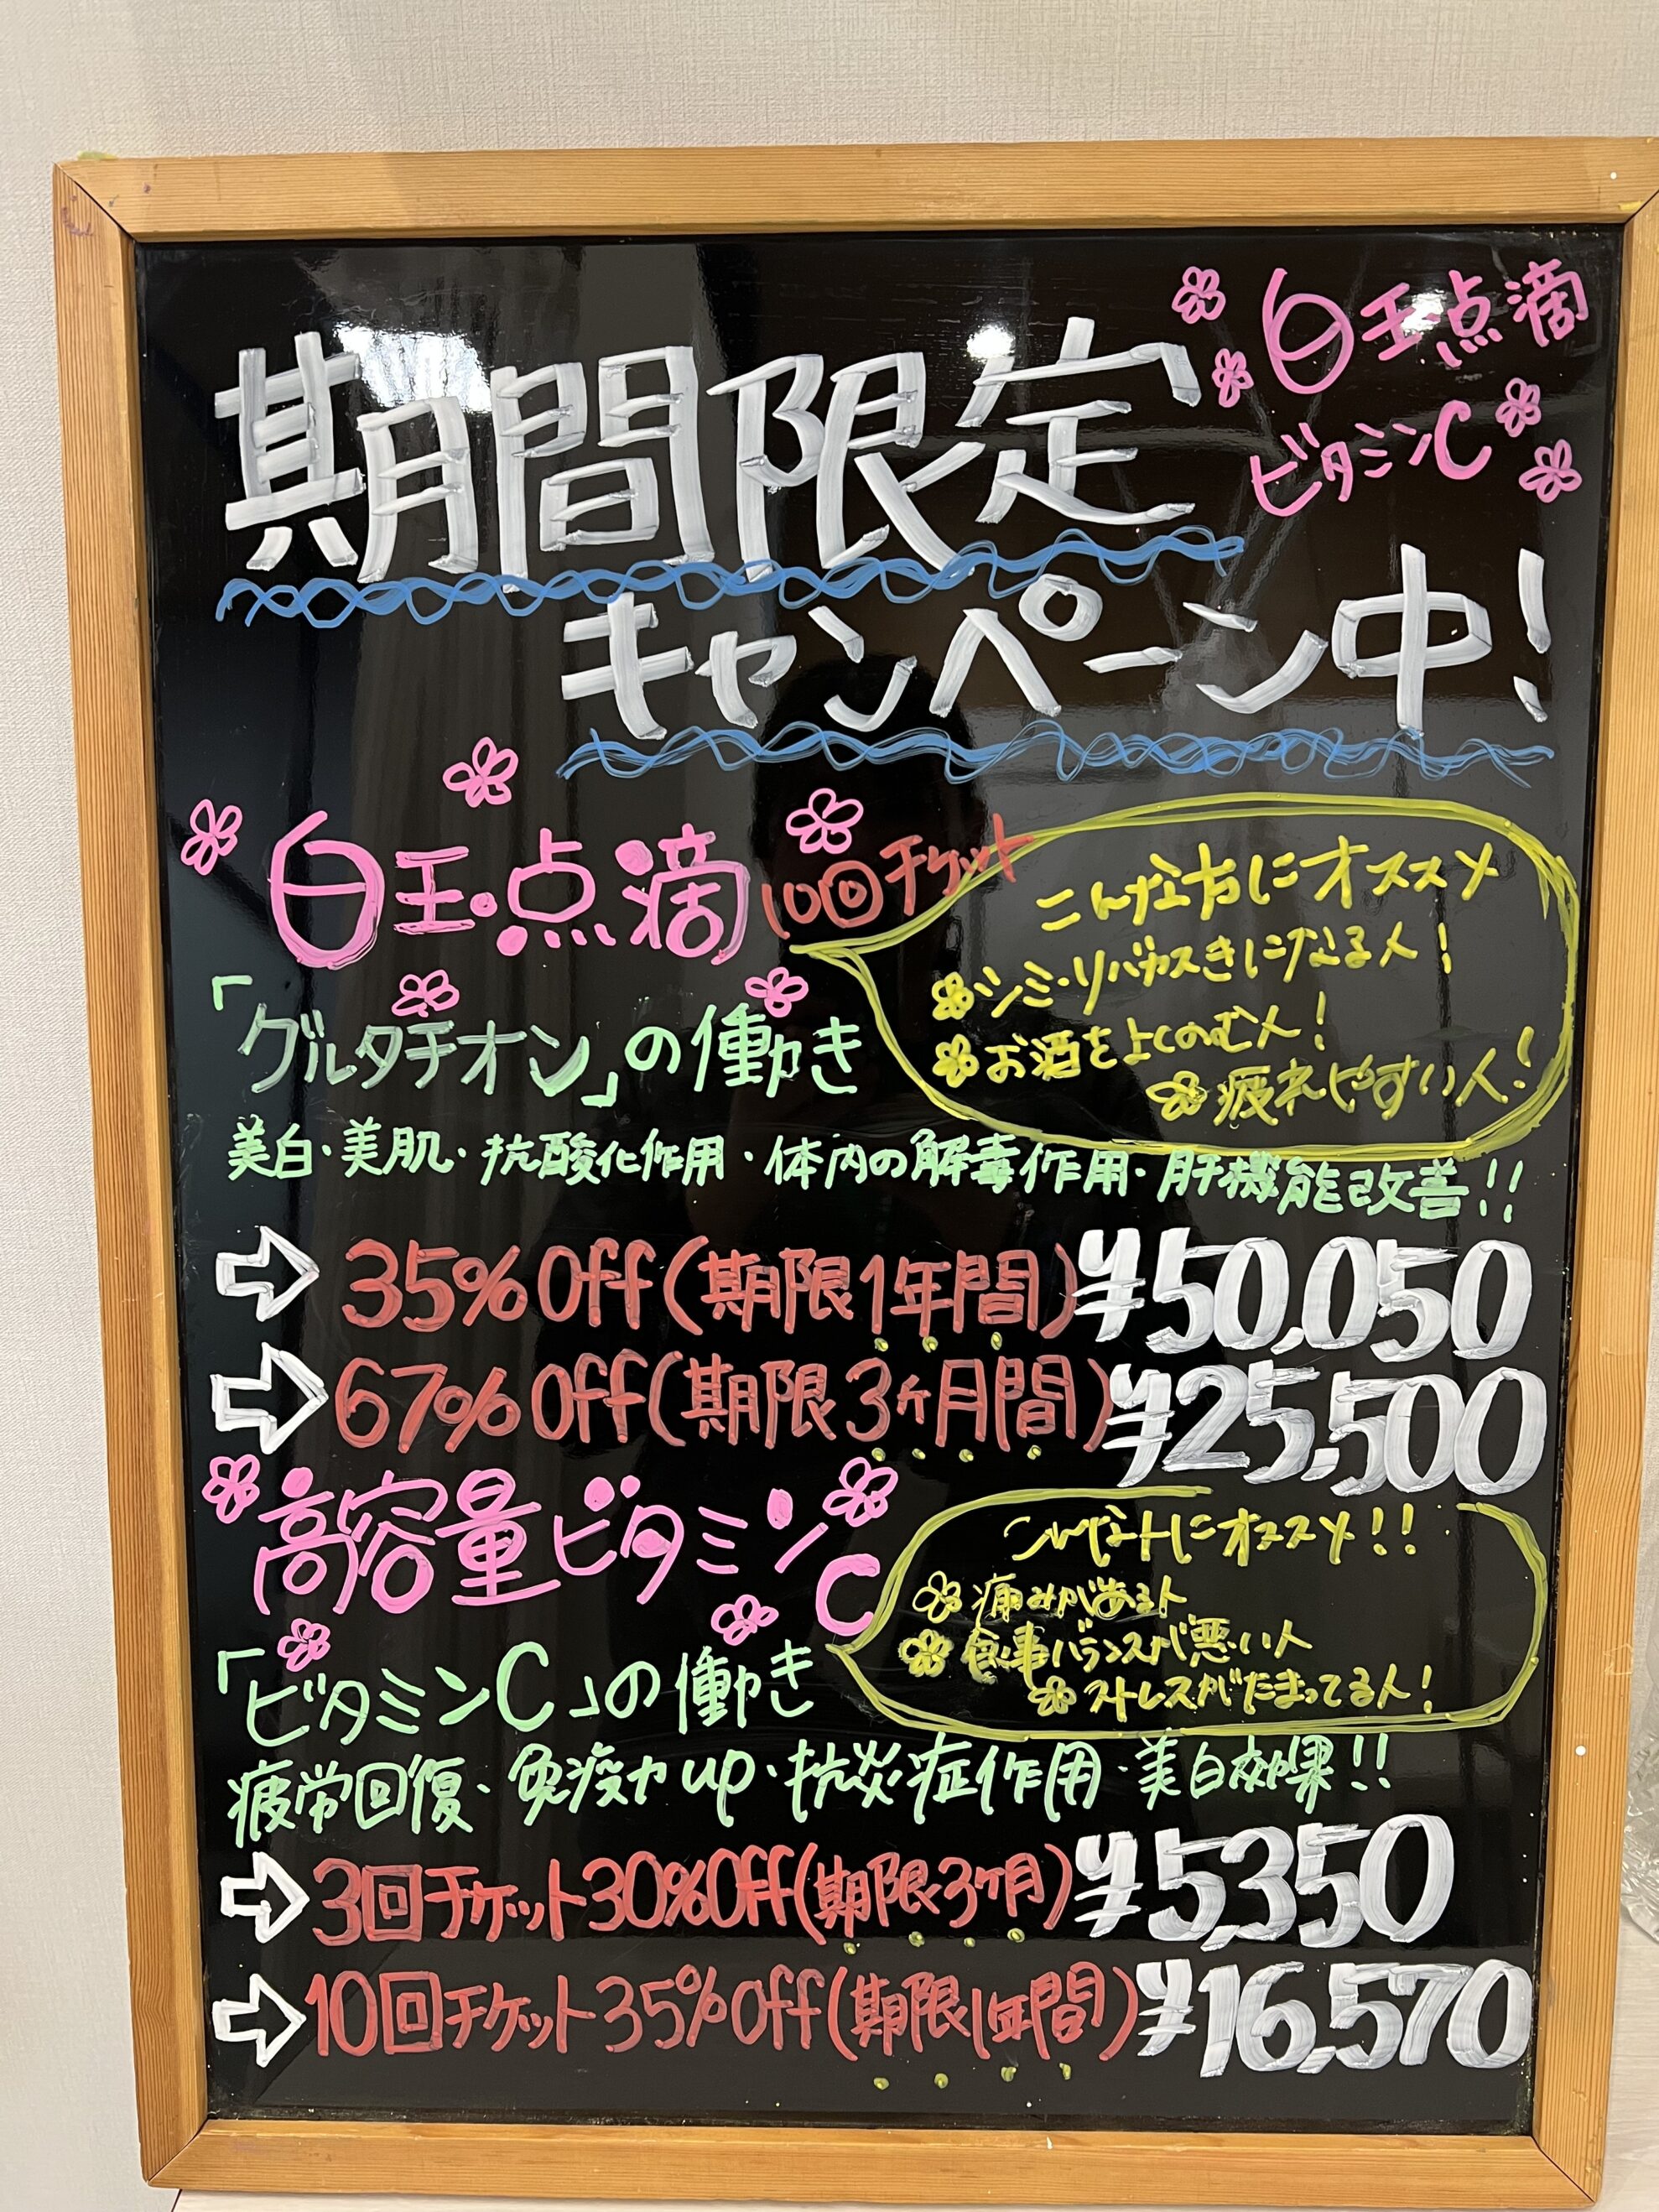 白玉点滴
ビタミンC
期間限定
キャンペーン中!
白玉点滴 10回チケット
こんな方にオススメ
シミ・ソバカスきになる人!
お酒をよくのむ人!
疲れやすい人!
「グルタチオン」の働き
美白・美肌・抗酸化作用・体内の解毒作用・肝機能改善!!
35%Off(期限1年間) ¥50,050
67%Off(期限3ヶ月間) ¥25,500
高容量ビタミンC
こんな人にオススメ!!
痛みがある人
食事バランスが悪い人
ストレスがたまってる人!
「ビタミンC」の働き
疲労回復・免疫力up・抗炎症作用・美白効果!!
3回チケット30%Off(期限3ヶ月) ¥5,350
10回チケット35%Off(期限1年間) ¥16,570